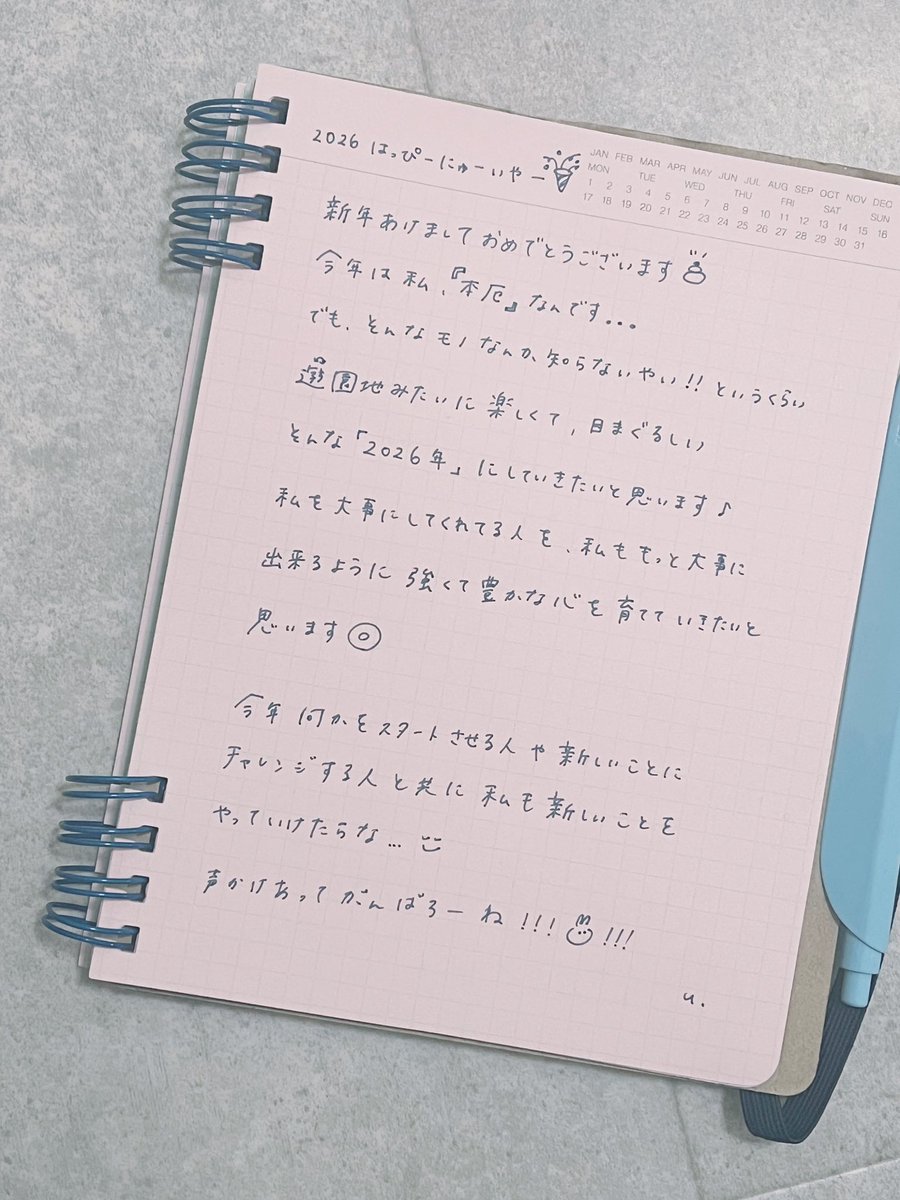 2026 はっぴーにゅーいやー
JAN FEB MAR APR MAY JUN JUL AUG SEP OCT NOV DEC
MON TUE WED THU FRI SAT SUN
1 2 3 4 5 6 7 8 9 10 11 12 13 14 15 16
17 18 19 20 21 22 23 24 25 26 27 28 29 30 31
新年あけましておめでとうございます
今年は私、『本厄』なんです...
でも、そんなモノなんか知らないやい!! というくらい
遊園地みたいに楽しくて、目まぐるしい
そんな「2026年」にしていきたいと思います♪
私を大事にしてくれてる人を、私ももっと大事に
出来るように強くて豊かな心を育てていきたいと
思います
今年何かをスタートさせる人や新しいことに
チャレンジする人と共に私も新しいことを
やっていけたらな...
声かけあってがんばろーね!!! !!!
u.